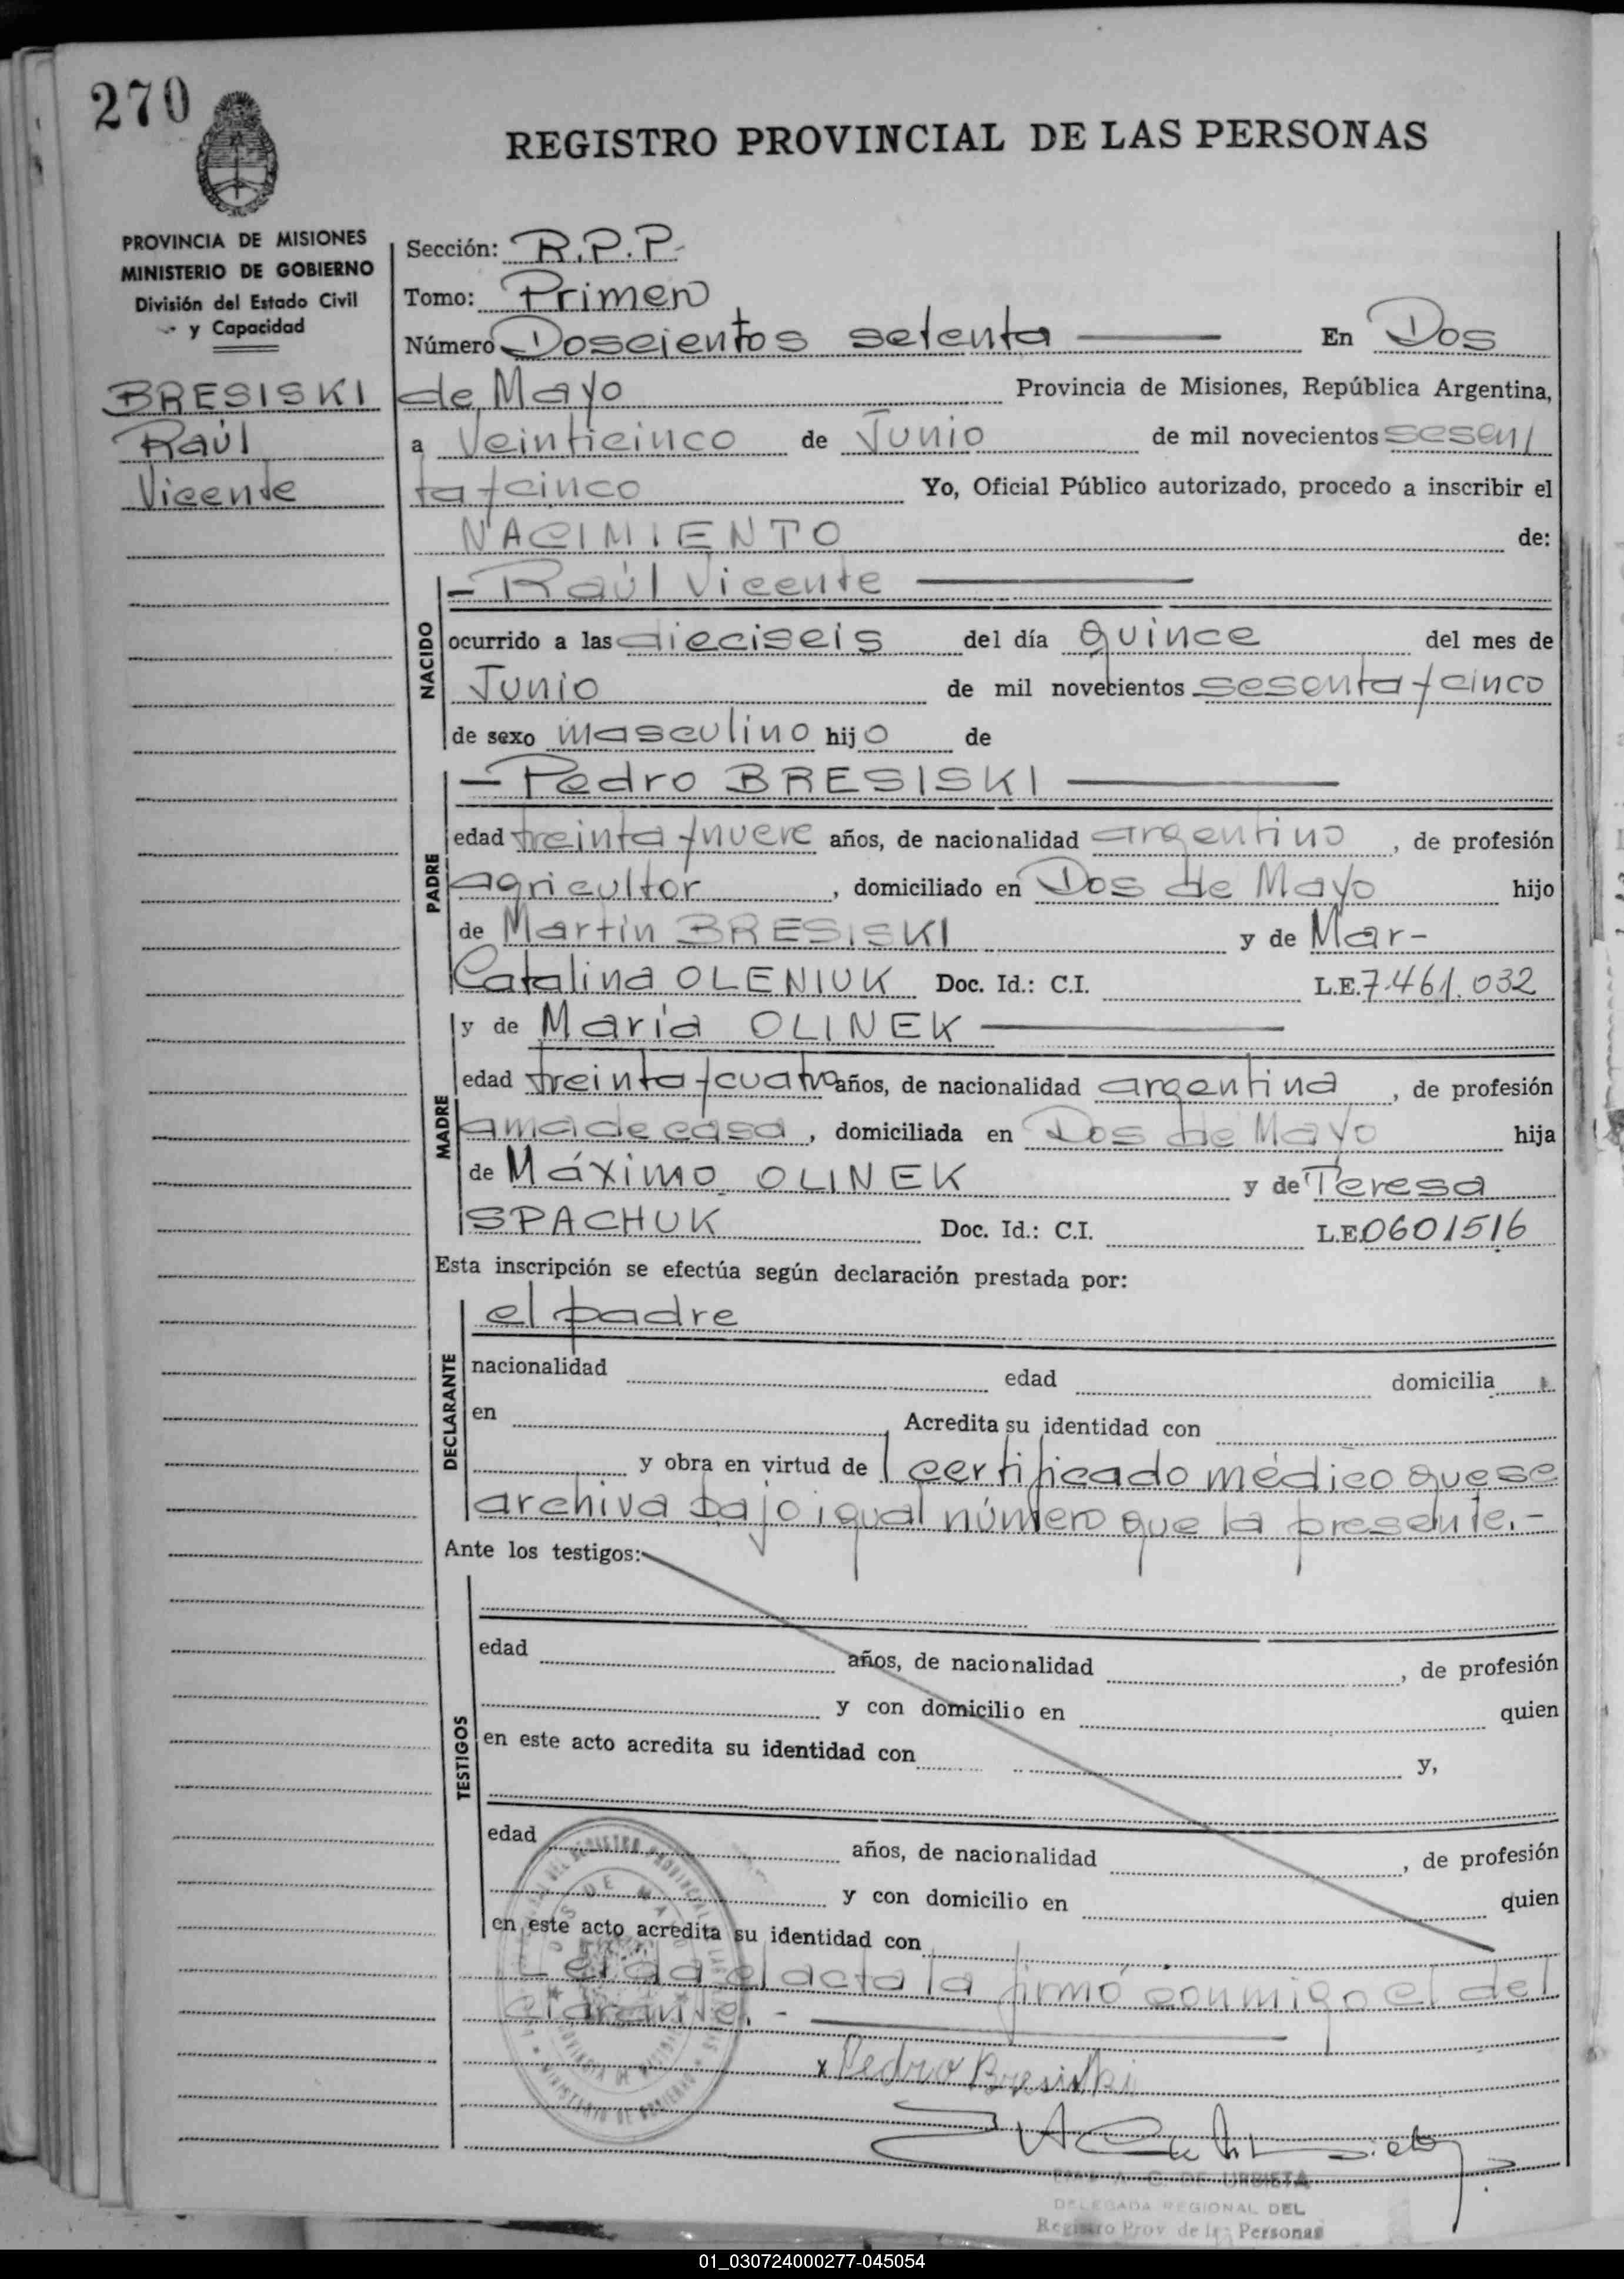 270
REGISTRO PROVINCIAL DE LAS PERSONAS
PROVINCIA DE MISIONES
MINISTERIO DE GOBIERNO
División del Estado Civil
y Capacidad
BRESISKI
Raúl
Vicente
Sección: R.P.P.
Tomo: Primero
Número Doscientos setenta En Dos
de Mayo Provincia de Misiones, República Argentina,
a Veinticinco de Junio de mil novecientos sesen/
ta y cinco Yo, Oficial Público autorizado, procedo a inscribir el
NACIMIENTO de:
NACIDO
- Raúl Vicente
ocurrido a las dieciseis del día quince del mes de
Junio de mil novecientos sesenta y cinco
de sexo masculino hijo de
PADRE
- Pedro BRESISKI
edad treinta y nueve años, de nacionalidad argentino, de profesión
agricultor, domiciliado en Dos de Mayo hijo
de Martín BRESISKI y de Mar-
Catalina OLENIUK Doc. Id.: C.I. L.E. 7.461.032
MADRE
y de María OLINEK
edad treinta y cuatro años, de nacionalidad argentina, de profesión
ama de casa, domiciliada en Dos de Mayo hija
de Máximo OLINEK y de Teresa
SPACHUK Doc. Id.: C.I. L.E. 0601516
Esta inscripción se efectúa según declaración prestada por:
DECLARANTE
el padre
nacionalidad edad domicilia
en Acredita su identidad con
y obra en virtud de l certificado médico que se
archiva bajo igual número que la presente.-
Ante los testigos:
TESTIGOS
edad años, de nacionalidad , de profesión
y con domicilio en quien
en este acto acredita su identidad con y,
edad años, de nacionalidad , de profesión
y con domicilio en quien
en este acto acredita su identidad con
Leída el acta la firmó conmigo el del
clarante.-
x Pedro Bresiski
A. C. DE URBIETA
DELEGADA REGIONAL DEL
Registro Prov. de las Personas
01_030724000277-045054